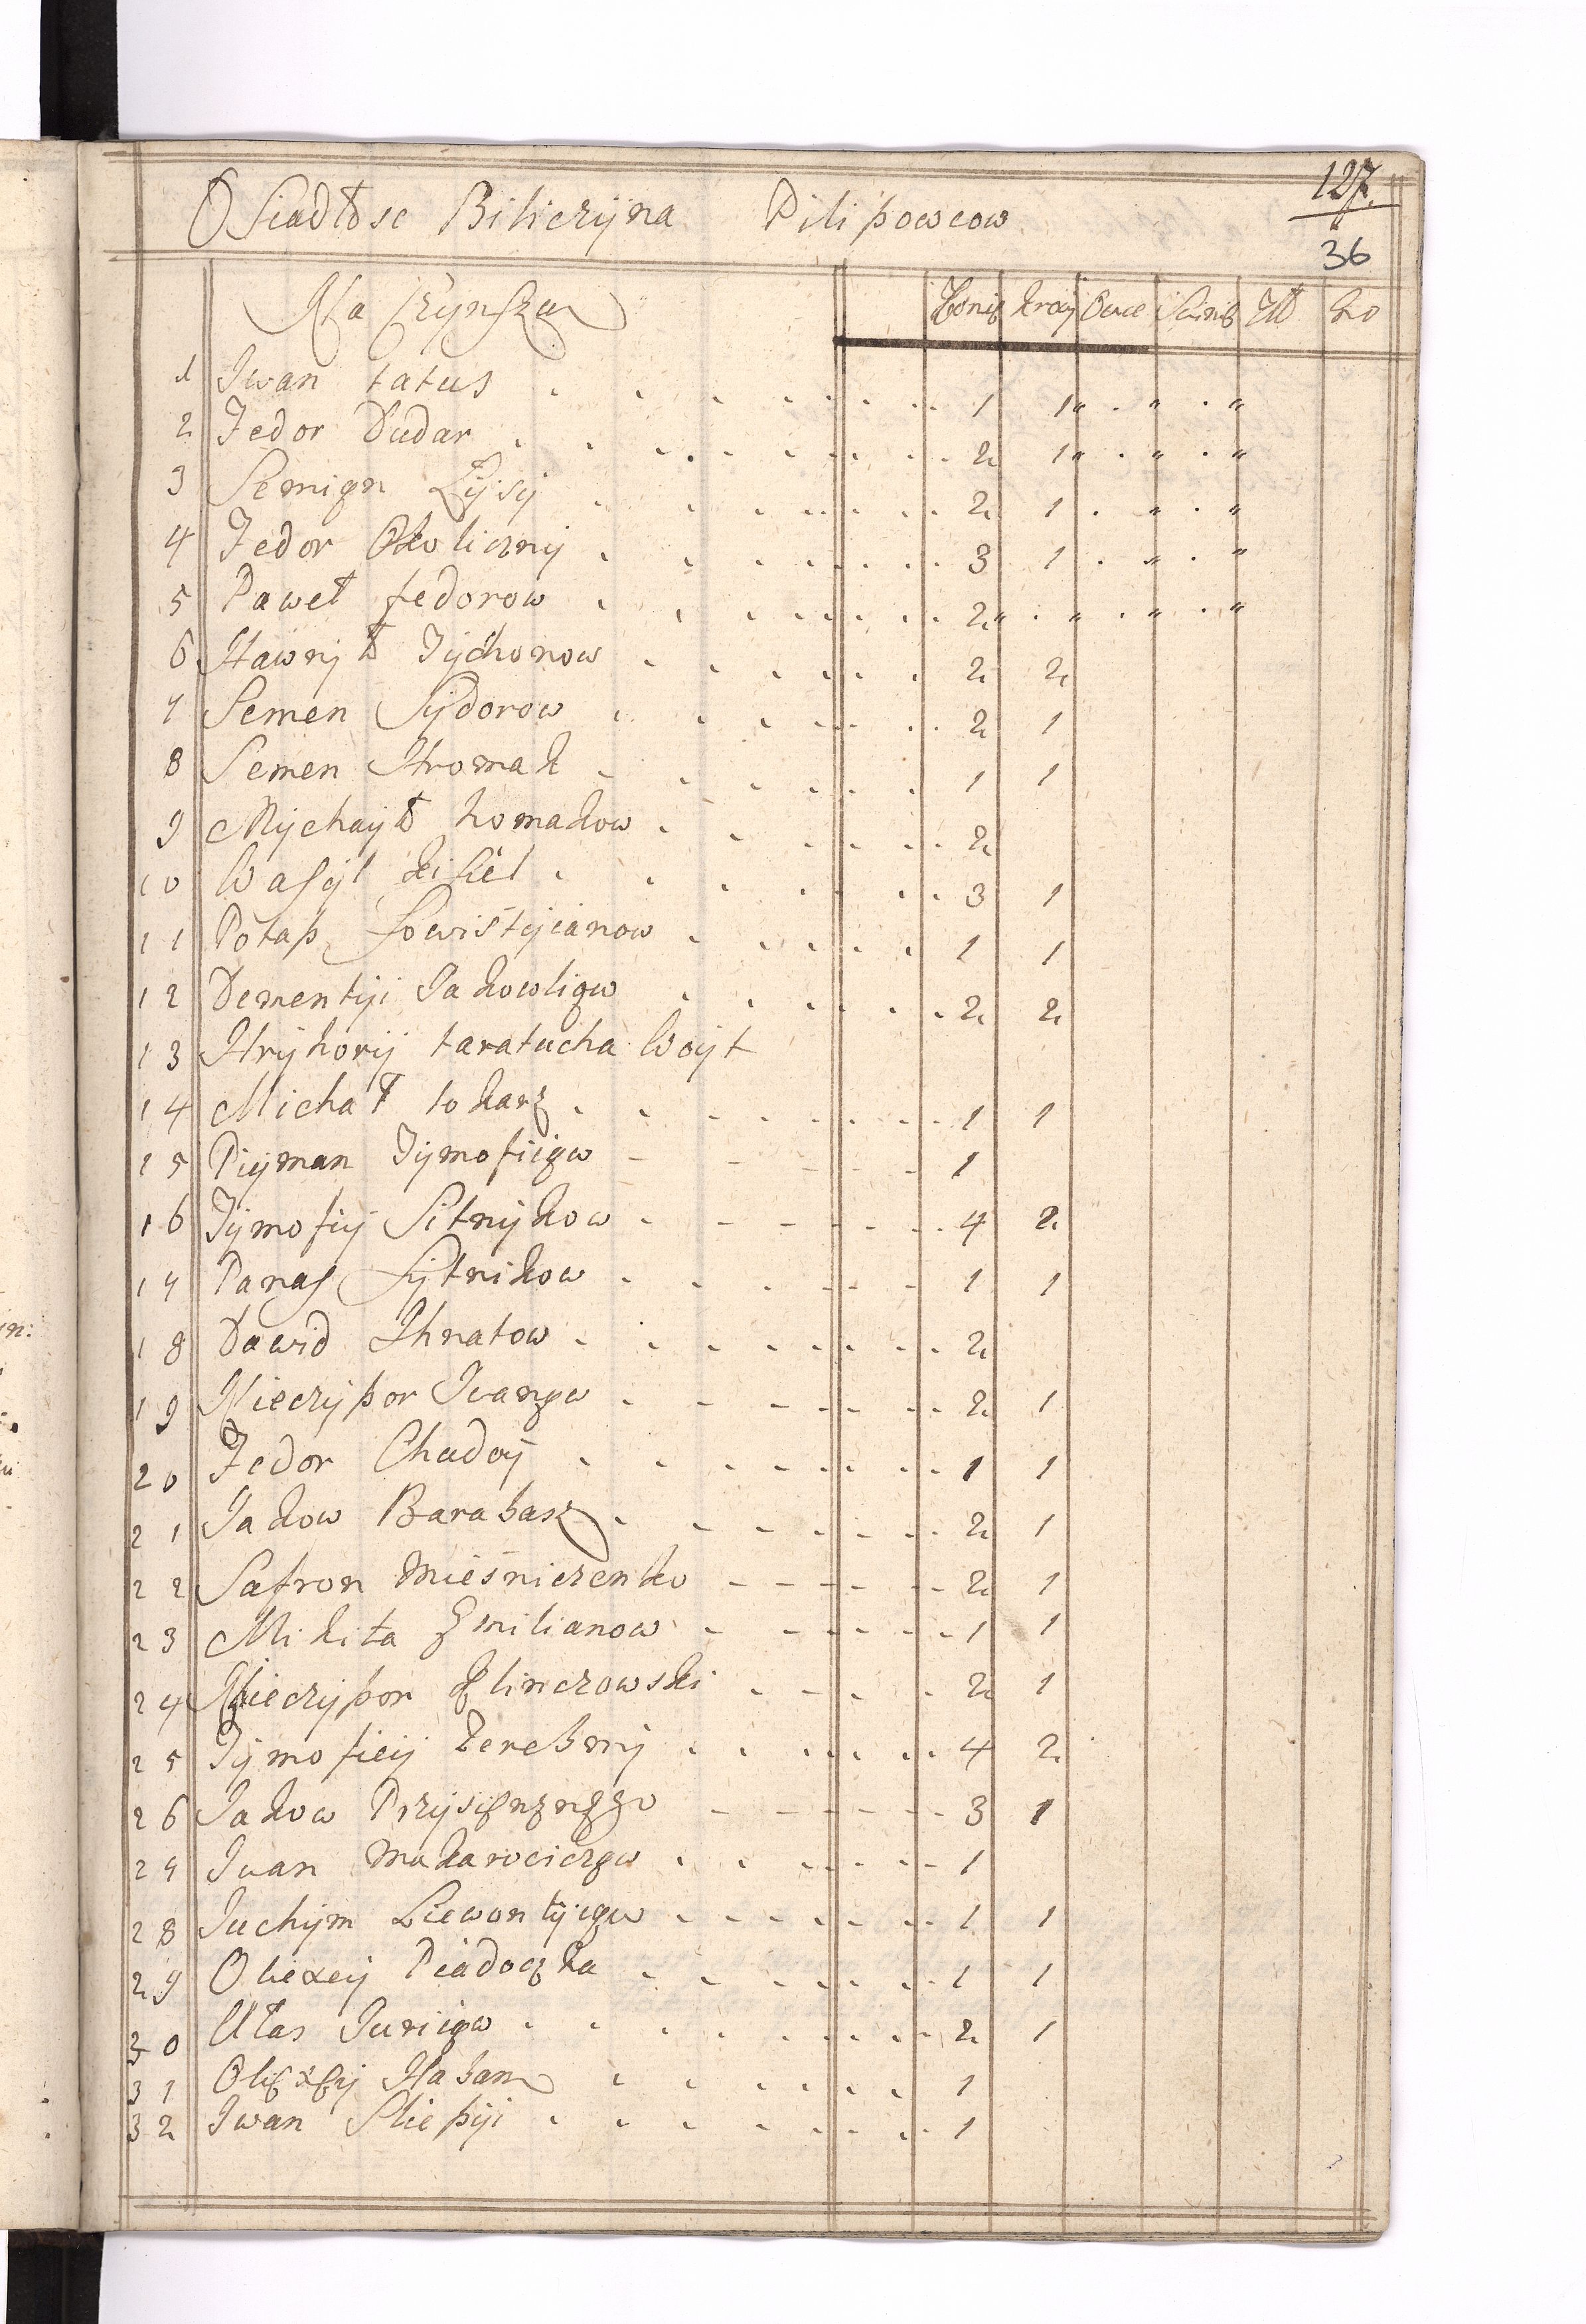 127.
36
Osiadłosc Biliczÿna Pilipowcow
Na Czÿnszu Konie Krow Owce Swinie Zł Gro
1 Iwan tatus . . . . 1 1 " . " . "
2 Fedor Dudar . . . . 2 1 " . " . "
3 Semign Łÿsÿ . . . . 2 1 . " . "
4 Fedor Okolicznÿ . . . . 3 1 . " . "
5 Paweł fedorow . . . . 2 " . " . " . "
6 Hawrÿło Tÿchonow . . . . 2 2
7 Semen Sÿdorow . . . . 2 1
8 Semen Hromak . . . . 1 1
9 Mÿchaÿło homakow . . . . 2
10 Wasÿl kisiel . . . . 3 1
11 Potap Sowistÿianow . . . . 1 1
12 Dementÿi Jakowligw . . . . 2 2
13 Hrÿhorÿ taratucha Woÿt
14 Michał tokarz . . . . 1 1
15 Piÿman Tÿmofiigw - - - - 1
16 Tÿmofiÿ Sitnÿkow - - - - 4 2
17 Panas Sÿtnikow . . . . 1 1
18 Dawid Ihnatow . . . . 2
19 Nieczÿpor Iwangw . . . . 2 1
20 Fedor Chudoÿ . . . . 1 1
21 Jakow Barabasz . . . . 2 1
22 Safron Mieśniczenko - - - - 2 1
23 Mikita Emilianow - - - - 1 1
24 Nieczÿpor Klinczowski . . . . 2 1
25 Tÿmofieÿ terebnÿ . . . . 4 2
26 Jakow Przÿsięznego - - - - 3 1
27 Iwan Makarociczgw . . . . 1
28 Juchÿm Liewontÿigw - - - - 1 1
29 Oliexeÿ Piadoczka . . . . 1 1
30 Ułas Juriigw . . . . 2 1
31 Olexeÿ Haban . . . . 1
32 Iwan Sliepÿi . . . . 1